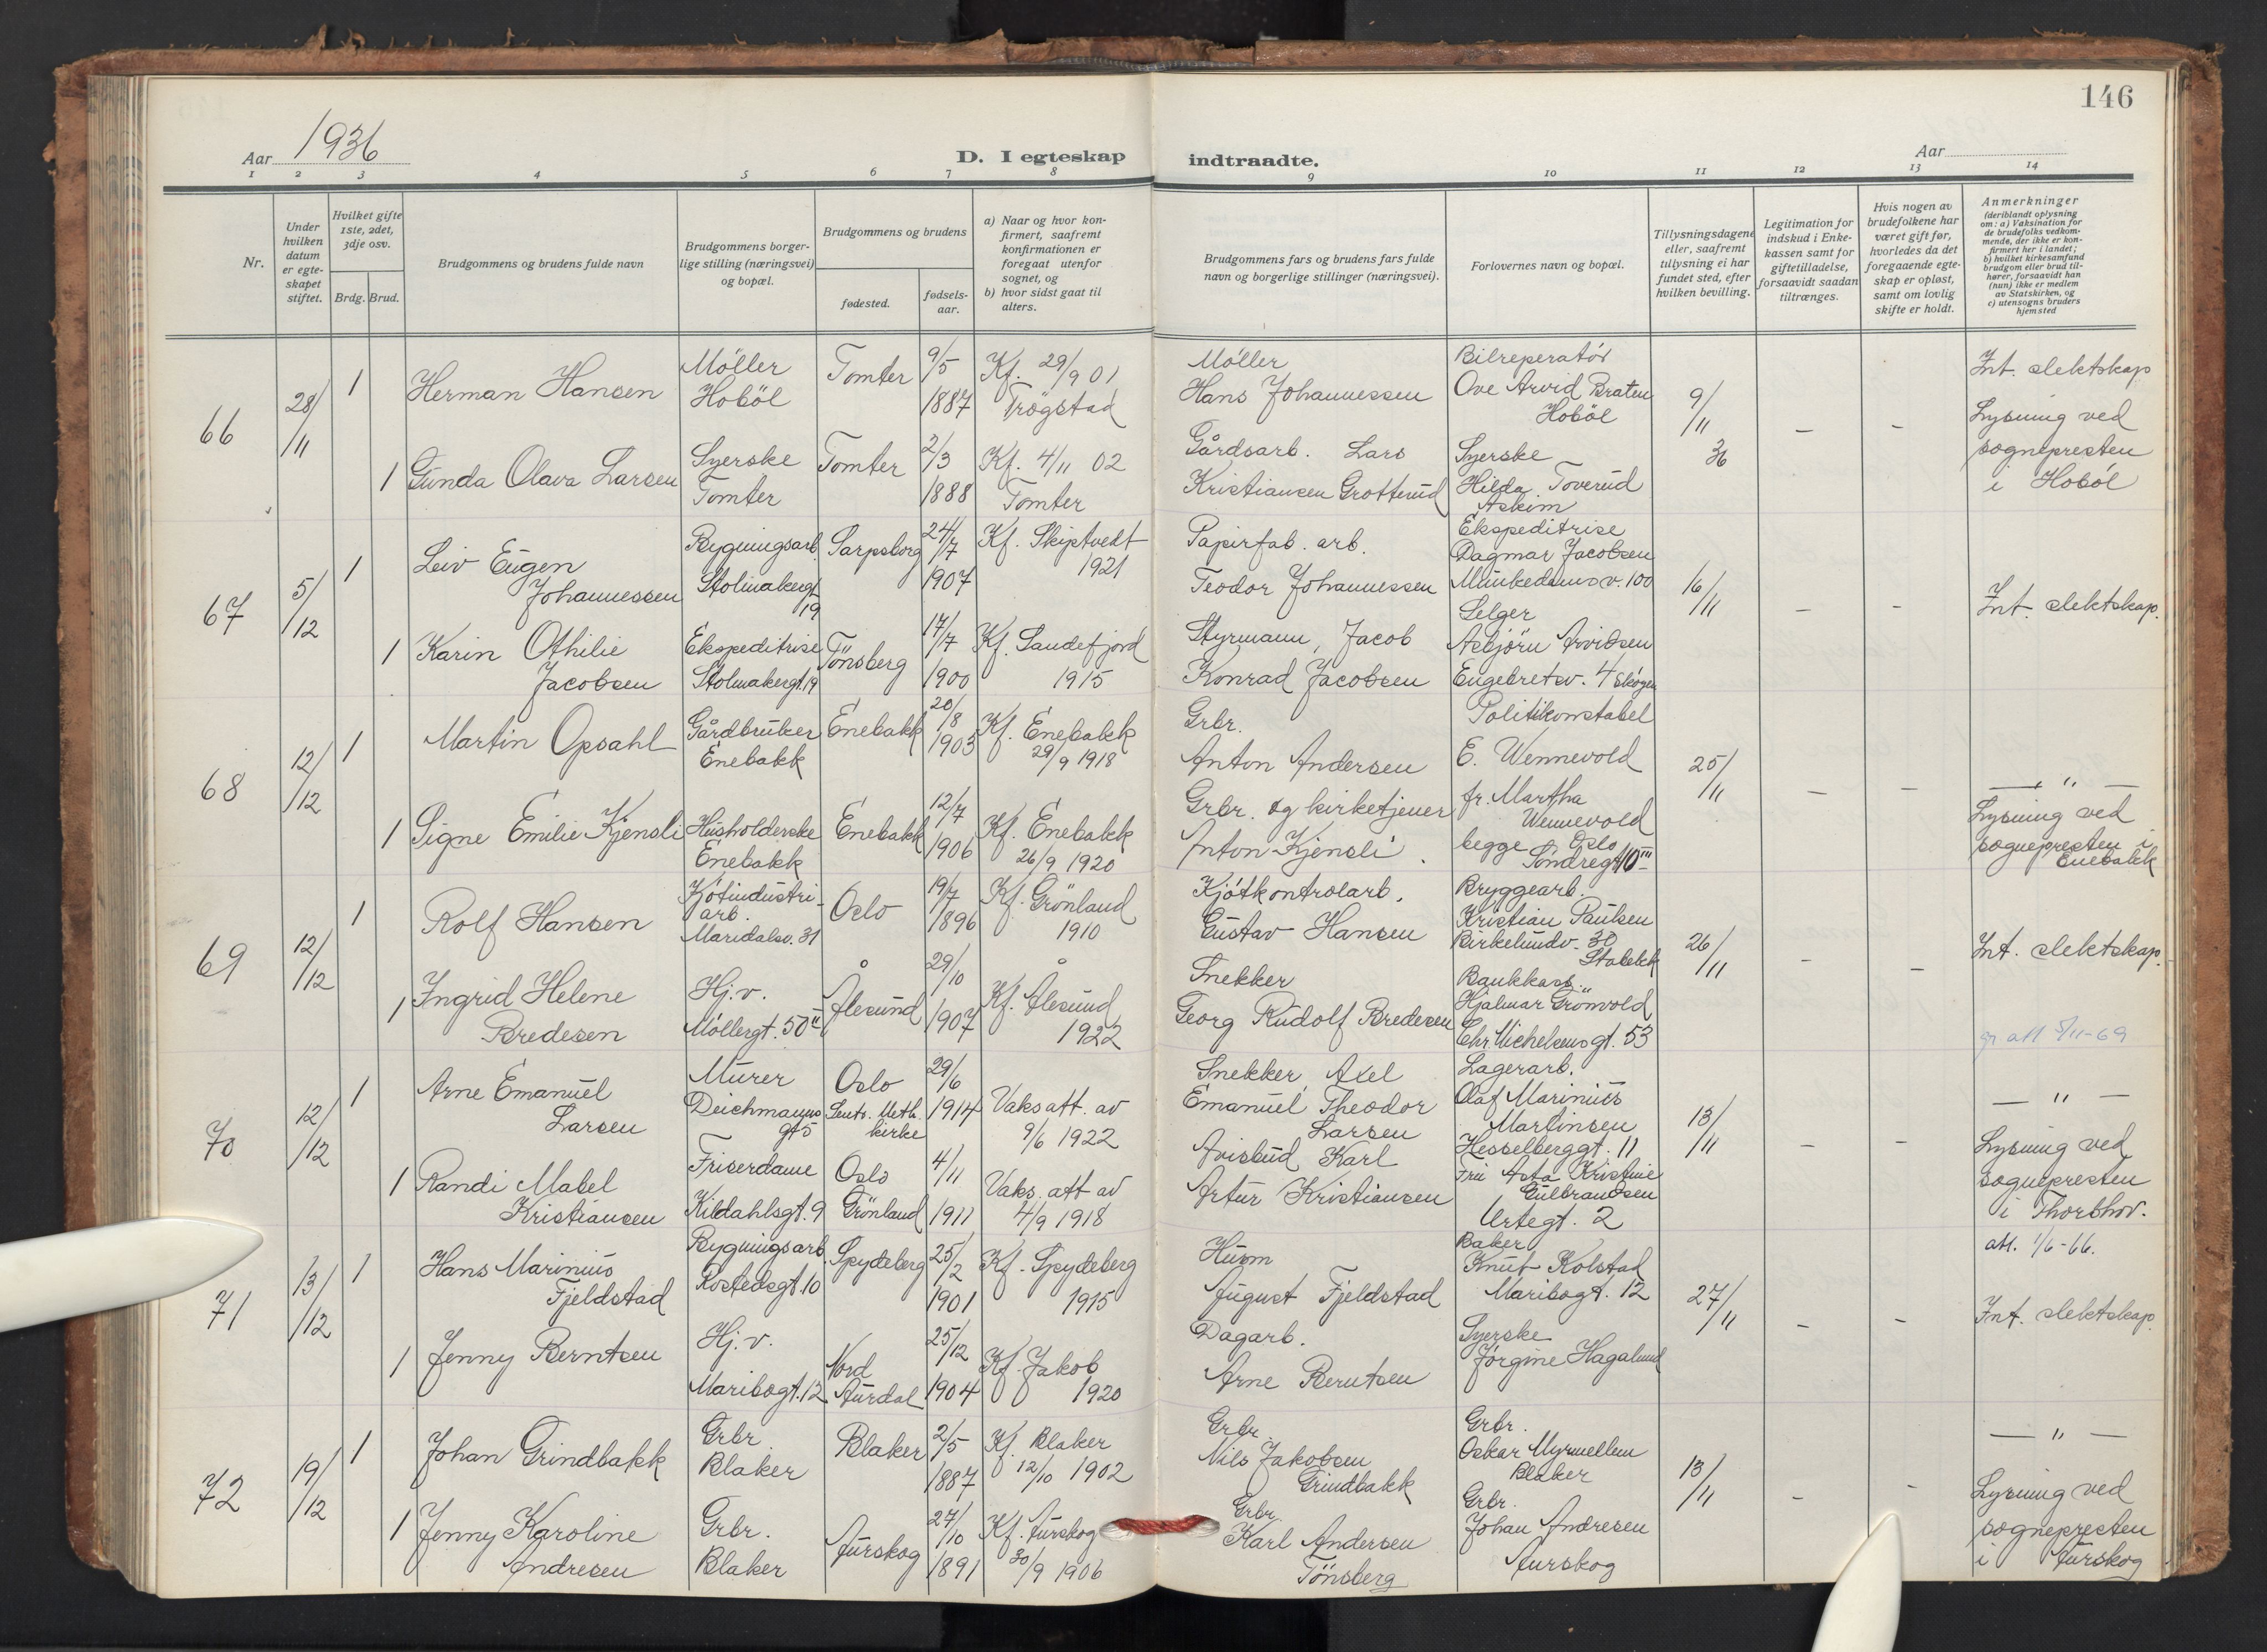 146
Aar 1936
D. I egteskap indtraadte.
Aar
1 2 3 4 5 6 7 8 9 10 11 12 13 14
Nr.
Under
hvilken
datum
er egte-
skapet
stiftet.
Hvilket gifte
1ste, 2det,
3dje osv.
Brdg. Brud.
Brudgommens og brudens fulde navn
Brudgommens borger-
lige stilling (næringsvei)
og bopæl.
Brudgommens og brudens
fødested.
fødsels-
aar.
a) Naar og hvor kon-
firmert, saafremt
konfirmationen er
foregaat utenfor
sognet, og
b) hvor sidst gaat til
alters.
Brudgommens fars og brudens fars fulde
navn og borgerlige stillinger (næringsvei).
Forlovernes navn og bopæl.
Tillysningsdagene
eller, saafremt
tillysning ei har
fundet sted, efter
hvilken bevilling.
Legitimation for
indskud i Enke-
kassen samt for
giftetilladelse,
forsaavidt saadan
tiltrænges.
Hvis nogen av
brudefolkene har
været gift før,
hvorledes da det
foregaaende egte-
skap er opløst,
samt om lovlig
skifte er holdt.
Anmerkninger
(deriblandt oplysning
om: a) Vaksination for
de brudefolks vedkom-
mende, der ikke er kon-
firmert her i landet;
b) hvilket kirkesamfund
brudgom eller brud til-
hører, forsaavidt han
(hun) ikke er medlem
av Statskirken, og
c) utensogns bruders
hjemsted
66
28/
11
1
Herman Hansen
Möller
Hoböl
Tomter
9/5
1887
Kf. 29/9 01
Trögstad
Möller
Hans Johannessen
Bilreperatör
Ove Arvid Braten
Hoböl
9/
11
36
-
-
Int. slektskap
Lysning ved
sognepresten
i Hoböl
1
Gunda Olava Larsen
Syerske
Tomter
Tomter
2/3
1888
Kf. 4/11 02
Tomter
Gårdsarb. Lars
Kristiansen Grotterud
Syerske
Hilda Toverud
Askim
67
5/
12
1
Leiv Eugen
Johannessen
Bygningsarb.
Stolmakergt
19
Sarpsborg
24/7
1907
Kf. Skiptvedt
1921
Papirfab. arb.
Teodor Johannessen
Ekspeditrise
Dagmar Jacobsen
Munkedamsv. 100
16/
11
-
-
Int. slektskap.
1
Karin Othilie
Jacobsen
Ekspeditrise
Stolmakergt. 19
Tönsberg
17/7
1900
Kf. Sandefjord
1915
Styrmann, Jacob
Konrad Jacobsen
Selger
Asbjörn Arvidsen
Engebretsv. 4 Skøyen
68
12/
12
1
Martin Opsahl
Gårdbruker
Enebakk
Enebakk
20/8
1903
Kf. Enebakk
29/9 1918
Grbr.
Anton Andersen
Politikonstabel
E. Wennevold
25/
11
-
-
— " —
Lysning ved
sognepresten i
Enebakk
1
Signe Emilie Kjensli
Husholderske
Enebakk
Enebakk
12/7
1906
Kf. Enebakk
26/9 1920
Grbr. og kirketjener
Anton Kjensli
fr. Martha
Wennevold
begge Oslo
Söndregt 10 III
69
12/
12
1
Rolf Hansen
Kjötindustri-
arb.
Maridalsv. 31
Oslo
19/7
1896
Kf. Grönland
1910
Kjötkontrolarb.
Gustav Hansen
Bryggearb.
Kristian Paulsen
Birkelundv. 30
Stabekk
26/
11
-
-
Int. slektskap.
1
Ingrid Helene
Bredesen
Hj. v.
Möllergt. 50 II
Ålesund
29/10
1907
Kf. Ålesund
1922
Snekker
Georg Rudolf Bredesen
Bankkass.
Hjalmar Grönvold
Chr. Michelsensgt. 53
att 5/11-69
70
12/
12
1
Arne Emanuel
Larsen
Murer
Deichmanns
gt 5
Oslo
Sentr. Meth.
kirke
29/6
1914
Vaks att. av
9/6 1922
Snekker Axel
Emanuel Theodor
Larsen
Lagerarb.
Olaf Marinius
Martinsen
Hesselberggt. 11
13/
11
-
-
— " —
Lysning ved
sognepresten
i Thorshov.
att. 1/6-66.
1
Randi Mabel
Kristiansen
Friserdame
Kildahlsgt. 9
Oslo
Grönland
4/11
1911
Vaks. att av
4/9 1918
Avisbud Karl
Artur Kristiansen
Fru Asta Kristine
Gulbrandsen
Urtegt. 2
71
13/
12
1
Hans Marinius
Fjeldstad
Bygningsarb.
Rostedsgt. 10
Spydeberg
25/2
1901
Kf. Spydeberg
1915
Husm
August Fjeldstad
Baker
Knut Kolstad
Maribogt. 12
27/
11
-
-
Int. slektskap.
1
Jenny Berntsen
Hj. v.
Maribogt. 12
Nord
Aurdal
25/12
1904
Kf. Jakob
1920
Dagarb.
Arne Berntsen
Syerske
Jörgine Hagalund
72
19/
12
1
Johan Grindbakk
Grbr.
Blaker
Blaker
2/5
1887
Kf. Blaker
12/10 1902
Grbr.
Nils Jakobsen
Grindbakk
Grbr.
Oskar Myrmellem
Blaker
13/
11
-
-
— " —
Lysning ved
sognepresten
i Aurskog
1
Jenny Karoline
Andresen
Grbr.
Blaker
Aurskog
27/10
1891
Kf. Aurskog
30/9 1906
Grbr.
Karl Andersen
Tönsberg
Grbr.
Johan Andresen
Aurskog